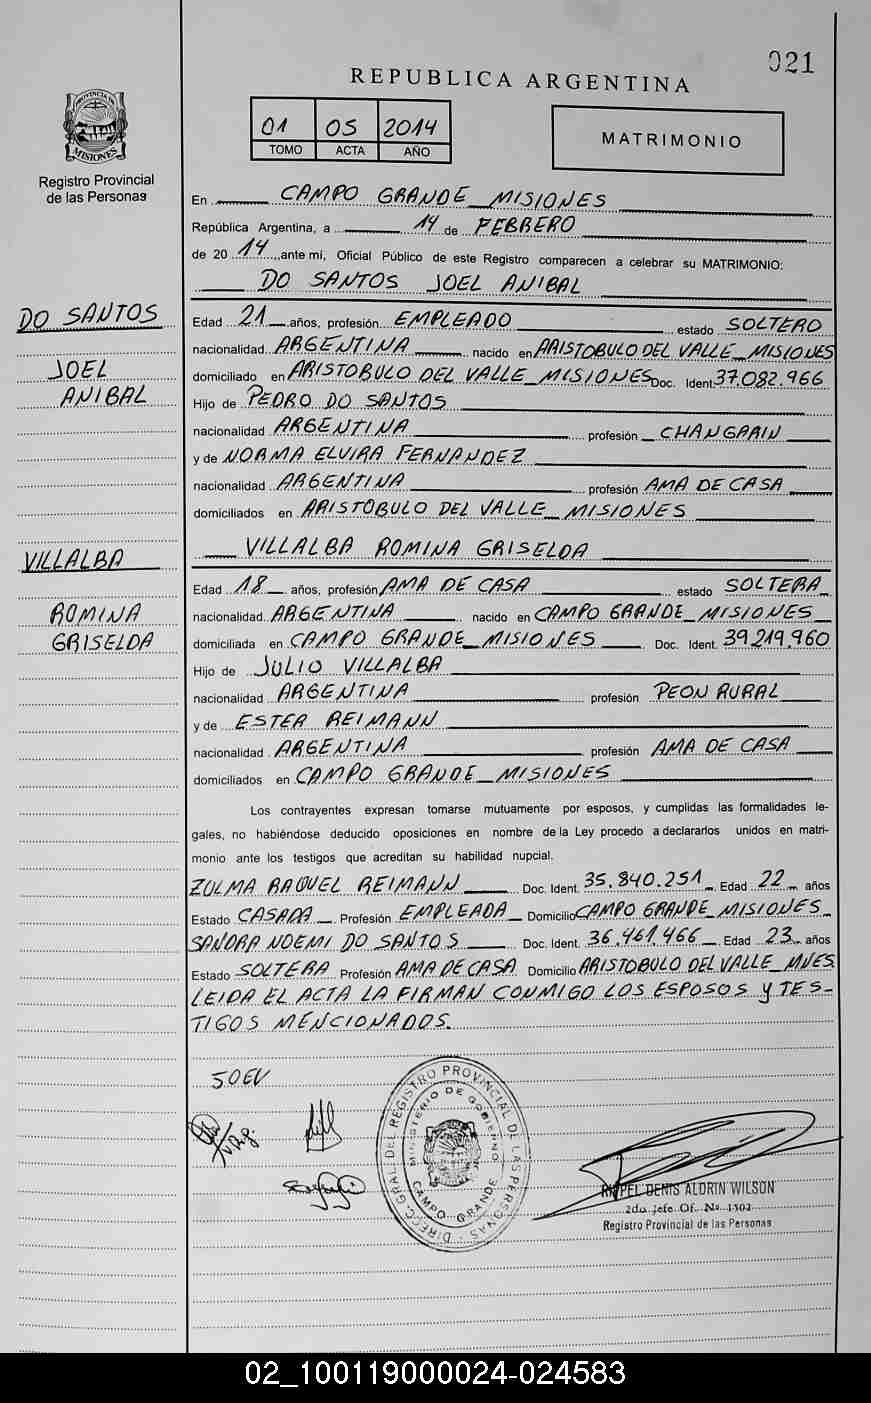 021
REPUBLICA ARGENTINA
PROVINCIA DE MISIONES
Registro Provincial
de las Personas
01 05 2014
TOMO ACTA AÑO
MATRIMONIO
En CAMPO GRANDE_MISIONES
República Argentina, a 14 de FEBRERO
de 20 14, ante mí, Oficial Público de este Registro comparecen a celebrar su MATRIMONIO:
DO SANTOS JOEL ANIBAL
DO SANTOS
JOEL
ANIBAL
Edad 21 años, profesión EMPLEADO estado SOLTERO
nacionalidad ARGENTINA nacido en ARISTOBULO DEL VALLE_MISIONES
domiciliado en ARISTOBULO DEL VALLE_MISIONES Doc. Ident. 37.082.966
Hijo de PEDRO DO SANTOS
nacionalidad ARGENTINA profesión CHANGARIN
y de NORMA ELVIRA FERNANDEZ
nacionalidad ARGENTINA profesión AMA DE CASA
domiciliados en ARISTOBULO DEL VALLE_MISIONES
VILLALBA ROMINA GRISELDA
VILLALBA
ROMINA
GRISELDA
Edad 18 años, profesión AMA DE CASA estado SOLTERA
nacionalidad ARGENTINA nacido en CAMPO GRANDE_MISIONES
domiciliada en CAMPO GRANDE_MISIONES Doc. Ident. 39.219.960
Hijo de JULIO VILLALBA
nacionalidad ARGENTINA profesión PEON RURAL
y de ESTER REIMANN
nacionalidad ARGENTINA profesión AMA DE CASA
domiciliados en CAMPO GRANDE_MISIONES
Los contrayentes expresan tomarse mutuamente por esposos, y cumplidas las formalidades le-
gales, no habiéndose deducido oposiciones en nombre de la Ley procedo a declararlos unidos en matri-
monio ante los testigos que acreditan su habilidad nupcial.
ZULMA RAQUEL REIMANN Doc. Ident. 35.840.251 Edad 22 años
Estado CASADA Profesión EMPLEADA Domicilio CAMPO GRANDE_MISIONES
SANDRA NOEMI DO SANTOS Doc. Ident. 36.461.466 Edad 23 años
Estado SOLTERA Profesión AMA DE CASA Domicilio ARISTOBULO DEL VALLE_MNES.
LEIDA EL ACTA LA FIRMAN CONMIGO LOS ESPOSOS Y TES-
TIGOS MENCIONADOS.
V.R.g.
DIRECC. GRAL. DEL REGISTRO PROVINCIAL DE LAS PERSONAS
MINISTERIO DE GOBIERNO
CAMPO GRANDE
DENIS ALDRIN WILSON
2do. Jefe Of. Nº 1502
Registro Provincial de las Personas
02_100119000024-024583